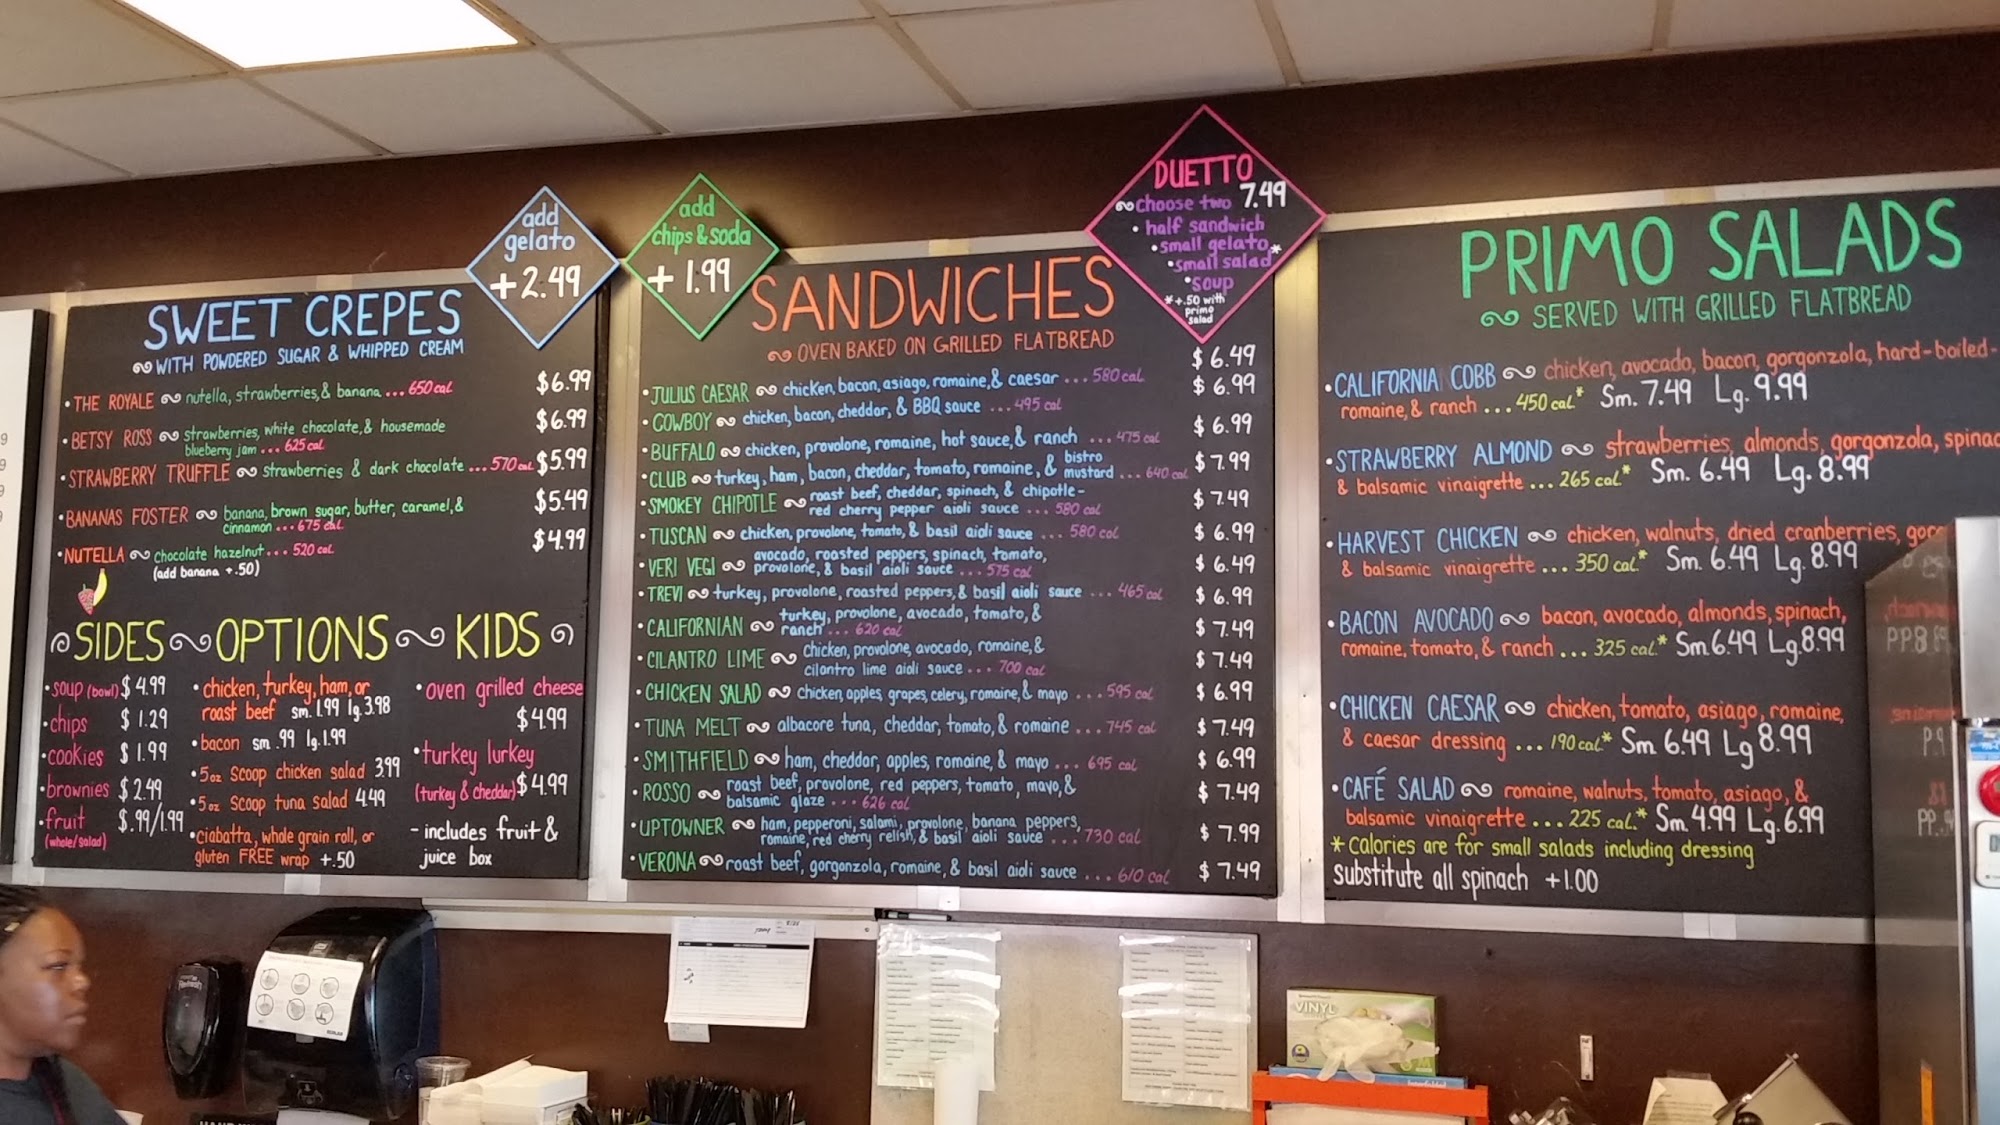 add
gelato
+2.49
add
chips & soda
+1.99
DUETTO
choose two 7.49
• half sandwich
• small gelato
• small salad*
• soup
*+.50 with
primo
salad
SWEET CREPES
WITH POWDERED SUGAR & WHIPPED CREAM
• THE ROYALE nutella, strawberries, & banana ... 650 cal $6.99
• BETSY ROSS strawberries, white chocolate, & housemade $6.99
blueberry jam ... 625 cal
• STRAWBERRY TRUFFLE strawberries & dark chocolate ... 570 cal $5.99
• BANANAS FOSTER banana, brown sugar, butter, caramel, & $5.49
cinnamon ... 675 cal
• NUTELLA chocolate hazelnut ... 520 cal $4.99
(add banana +.50)
SIDES OPTIONS KIDS
• soup (bowl) $4.99
• chips $1.29
• cookies $1.99
• brownies $2.49
• fruit $.99/1.99
(whole/salad)
• chicken, turkey, ham, or
roast beef sm. 1.99 lg. 3.98
• bacon sm .99 lg. 1.99
• 5oz Scoop chicken salad 3.99
• 5oz Scoop tuna salad 4.49
• ciabatta, whole grain roll, or
gluten FREE wrap +.50
• oven grilled cheese
$4.99
• turkey lurkey
(turkey & cheddar) $4.99
- includes fruit &
juice box
SANDWICHES
OVEN BAKED ON GRILLED FLATBREAD
$6.49
• JULIUS CAESAR chicken, bacon, asiago, romaine, & caesar ... 580 cal $6.99
• COWBOY chicken, bacon, cheddar, & BBQ sauce ... 495 cal
• BUFFALO chicken, provolone, romaine, hot sauce, & ranch ... 475 cal $6.99
• CLUB turkey, ham, bacon, cheddar, tomato, romaine, & bistro mustard ... 640 cal $7.99
• SMOKEY CHIPOTLE roast beef, cheddar, spinach, & chipotle- $7.49
red cherry pepper aioli sauce ... 580 cal
• TUSCAN chicken, provolone, tomato, & basil aioli sauce ... 580 cal $6.99
• VERI VEGI avocado, roasted peppers, spinach, tomato, $6.49
provolone, & basil aioli sauce ... 575 cal
• TREVI turkey, provolone, roasted peppers, & basil aioli sauce ... 465 cal $6.99
• CALIFORNIAN turkey, provolone, avocado, tomato, & $7.49
ranch ... 620 cal
• CILANTRO LIME chicken, provolone, avocado, romaine, & $7.49
cilantro lime aioli sauce ... 700 cal
• CHICKEN SALAD chicken, apples, grapes, celery, romaine, & mayo ... 595 cal $6.99
• TUNA MELT albacore tuna, cheddar, tomato, & romaine ... 745 cal $7.49
• SMITHFIELD ham, cheddar, apples, romaine, & mayo ... 695 cal $6.99
• ROSSO roast beef, provolone, red peppers, tomato, mayo, & $7.49
balsamic glaze ... 626 cal
• UPTOWNER ham, pepperoni, salami, provolone, banana peppers, $7.99
romaine, red cherry relish, & basil aioli sauce ... 730 cal
• VERONA roast beef, gorgonzola, romaine, & basil aioli sauce ... 610 cal $7.49
PRIMO SALADS
SERVED WITH GRILLED FLATBREAD
• CALIFORNIA COBB chicken, avocado, bacon, gorgonzola, hard-boiled-
romaine, & ranch ... 450 cal.* Sm. 7.49 Lg. 9.99
• STRAWBERRY ALMOND strawberries, almonds, gorgonzola, spinac
& balsamic vinaigrette ... 265 cal.* Sm. 6.49 Lg. 8.99
• HARVEST CHICKEN chicken, walnuts, dried cranberries, gor
& balsamic vinaigrette ... 350 cal.* Sm. 6.49 Lg. 8.99
• BACON AVOCADO bacon, avocado, almonds, spinach,
romaine, tomato, & ranch ... 325 cal.* Sm 6.49 Lg. 8.99
• CHICKEN CAESAR chicken, tomato, asiago, romaine,
& caesar dressing ... 190 cal.* Sm 6.49 Lg 8.99
• CAFÉ SALAD romaine, walnuts, tomato, asiago, &
balsamic vinaigrette ... 225 cal.* Sm. 4.99 Lg. 6.99
* Calories are for small salads including dressing
substitute all spinach +1.00
VINYL